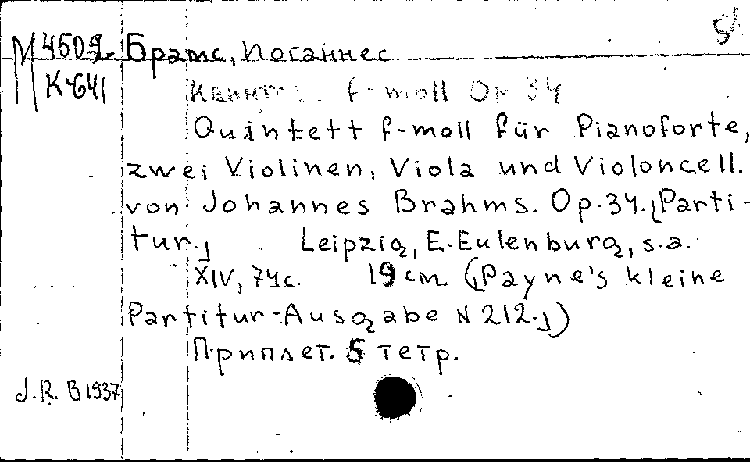 М 4509 Брамс, Иоганнес
К-641
Квинт f-moll Op 34
Quintett f-moll für Pianoforte,
zwei Violinen, Viola und Violoncell.
von Johannes Brahms. Op.34.[Parti-
tur.] Leipzig, E. Eulenburg, s.a.
XIV, 74с. 19 см. ([Payne's kleine
Partitur-Ausgabe N 212.])
Приплет. 5 тетр.
J.R. В 1937